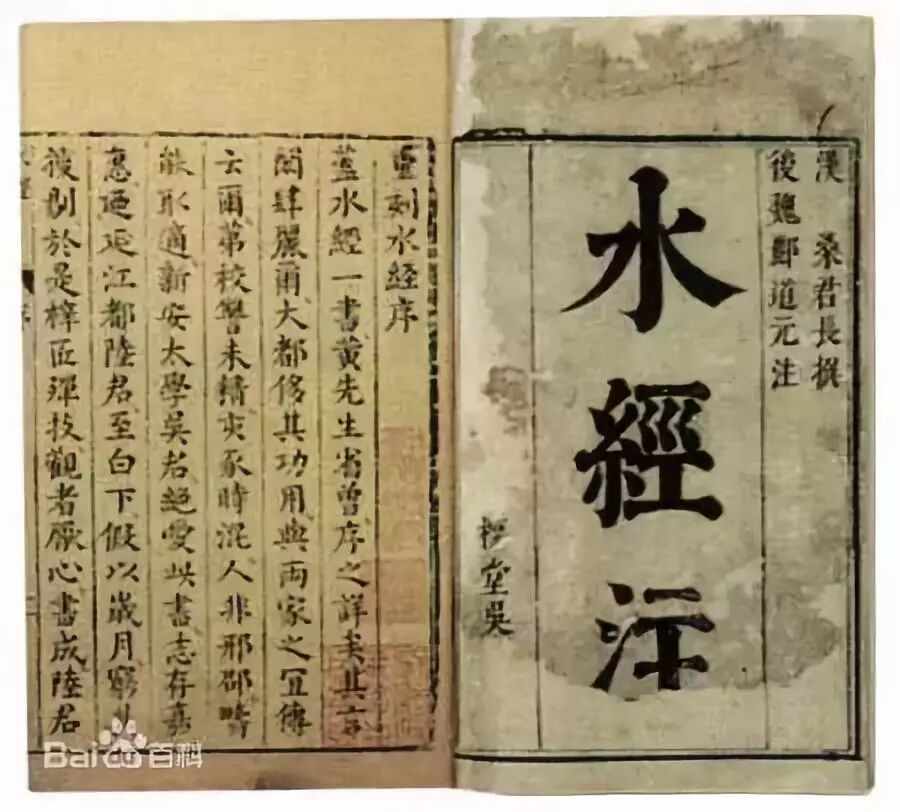 漢 桑君長撰
後魏酈道元注
水經注
堂吳
重刻水經序
蓋水經一書黃先生省曾序之詳矣其言
閎肆麗爾大都侈其功用與兩家之冝傳
云爾苐校讐未精亥豕時混人非邢邵疇
能取適新安太學吳君絕愛此書志存嘉
惠迺延江都陸君至白下假以歲月窮
剔於是梓匠殫技觀者厭心書成陸君
Baidu百科